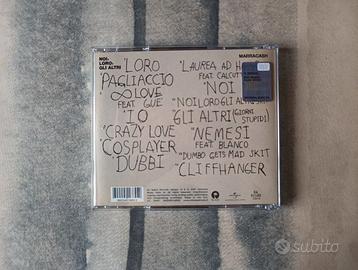 NOI,
LORO,
GLI ALTRI
MARRACASH
LORO
PAGLIACCIO
∞ LOVE
FEAT GUE
IO
CRAZY LOVE
COSPLAYER
DUBBI
LAUREA AD
FEAT. CALCUTTA
NOI
NOI LORO GLI ALTRI SKIT
GLI ALTRI (GIORNI
STUPIDI)
NEMESI
FEAT. BLANCO
DUMBO GETS MAD SKIT
CLIFFHANGER
subito